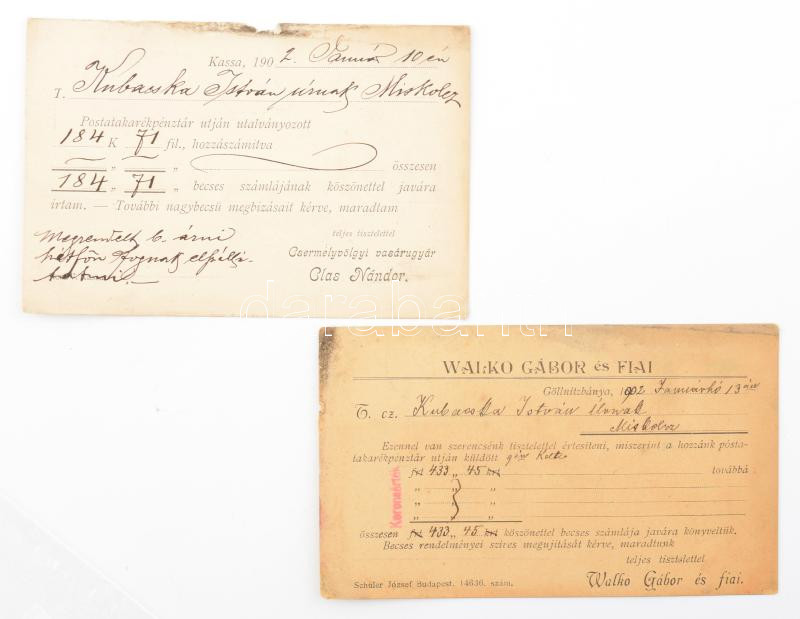 Kassa, 1902 Január 10 én
T. Kubacska István úrnak Miskolcz
Postatakarékpénztár utján utalványozott
184 K 71 fil., hozzászámitva
„ „ összesen
184 „ 71 „ becses számlájának köszönettel javára
irtam. — További nagybecsü megbizásait kérve, maradtam
teljes tisztelettel
Csermélyvölgyi vasárugyár
Glas Nándor.
Megrendelt b. árui
hétfőn fognak
darabanth
WALKO GÁBOR és FIAI
Göllnitzbánya, 1902 Januárhó 13 án
T. cz. Kubacska István
Miskolcz
Ezennel van szerencsénk tisztelettel értesiteni, miszerint a hozzánk posta-
takarékpénztár utján küldött
Koronaérték
frt 433 „ 45 krt továbbá
„ „ „
„ „ „
„ „ „
összesen frt 433 „ 45 krt köszönettel becses számlája javára könyveltük.
Becses rendelményei szives megujitását kérve, maradtunk
teljes tisztelettel
Schüler József Budapest. 14636. szám.
Walko Gábor és fiai.